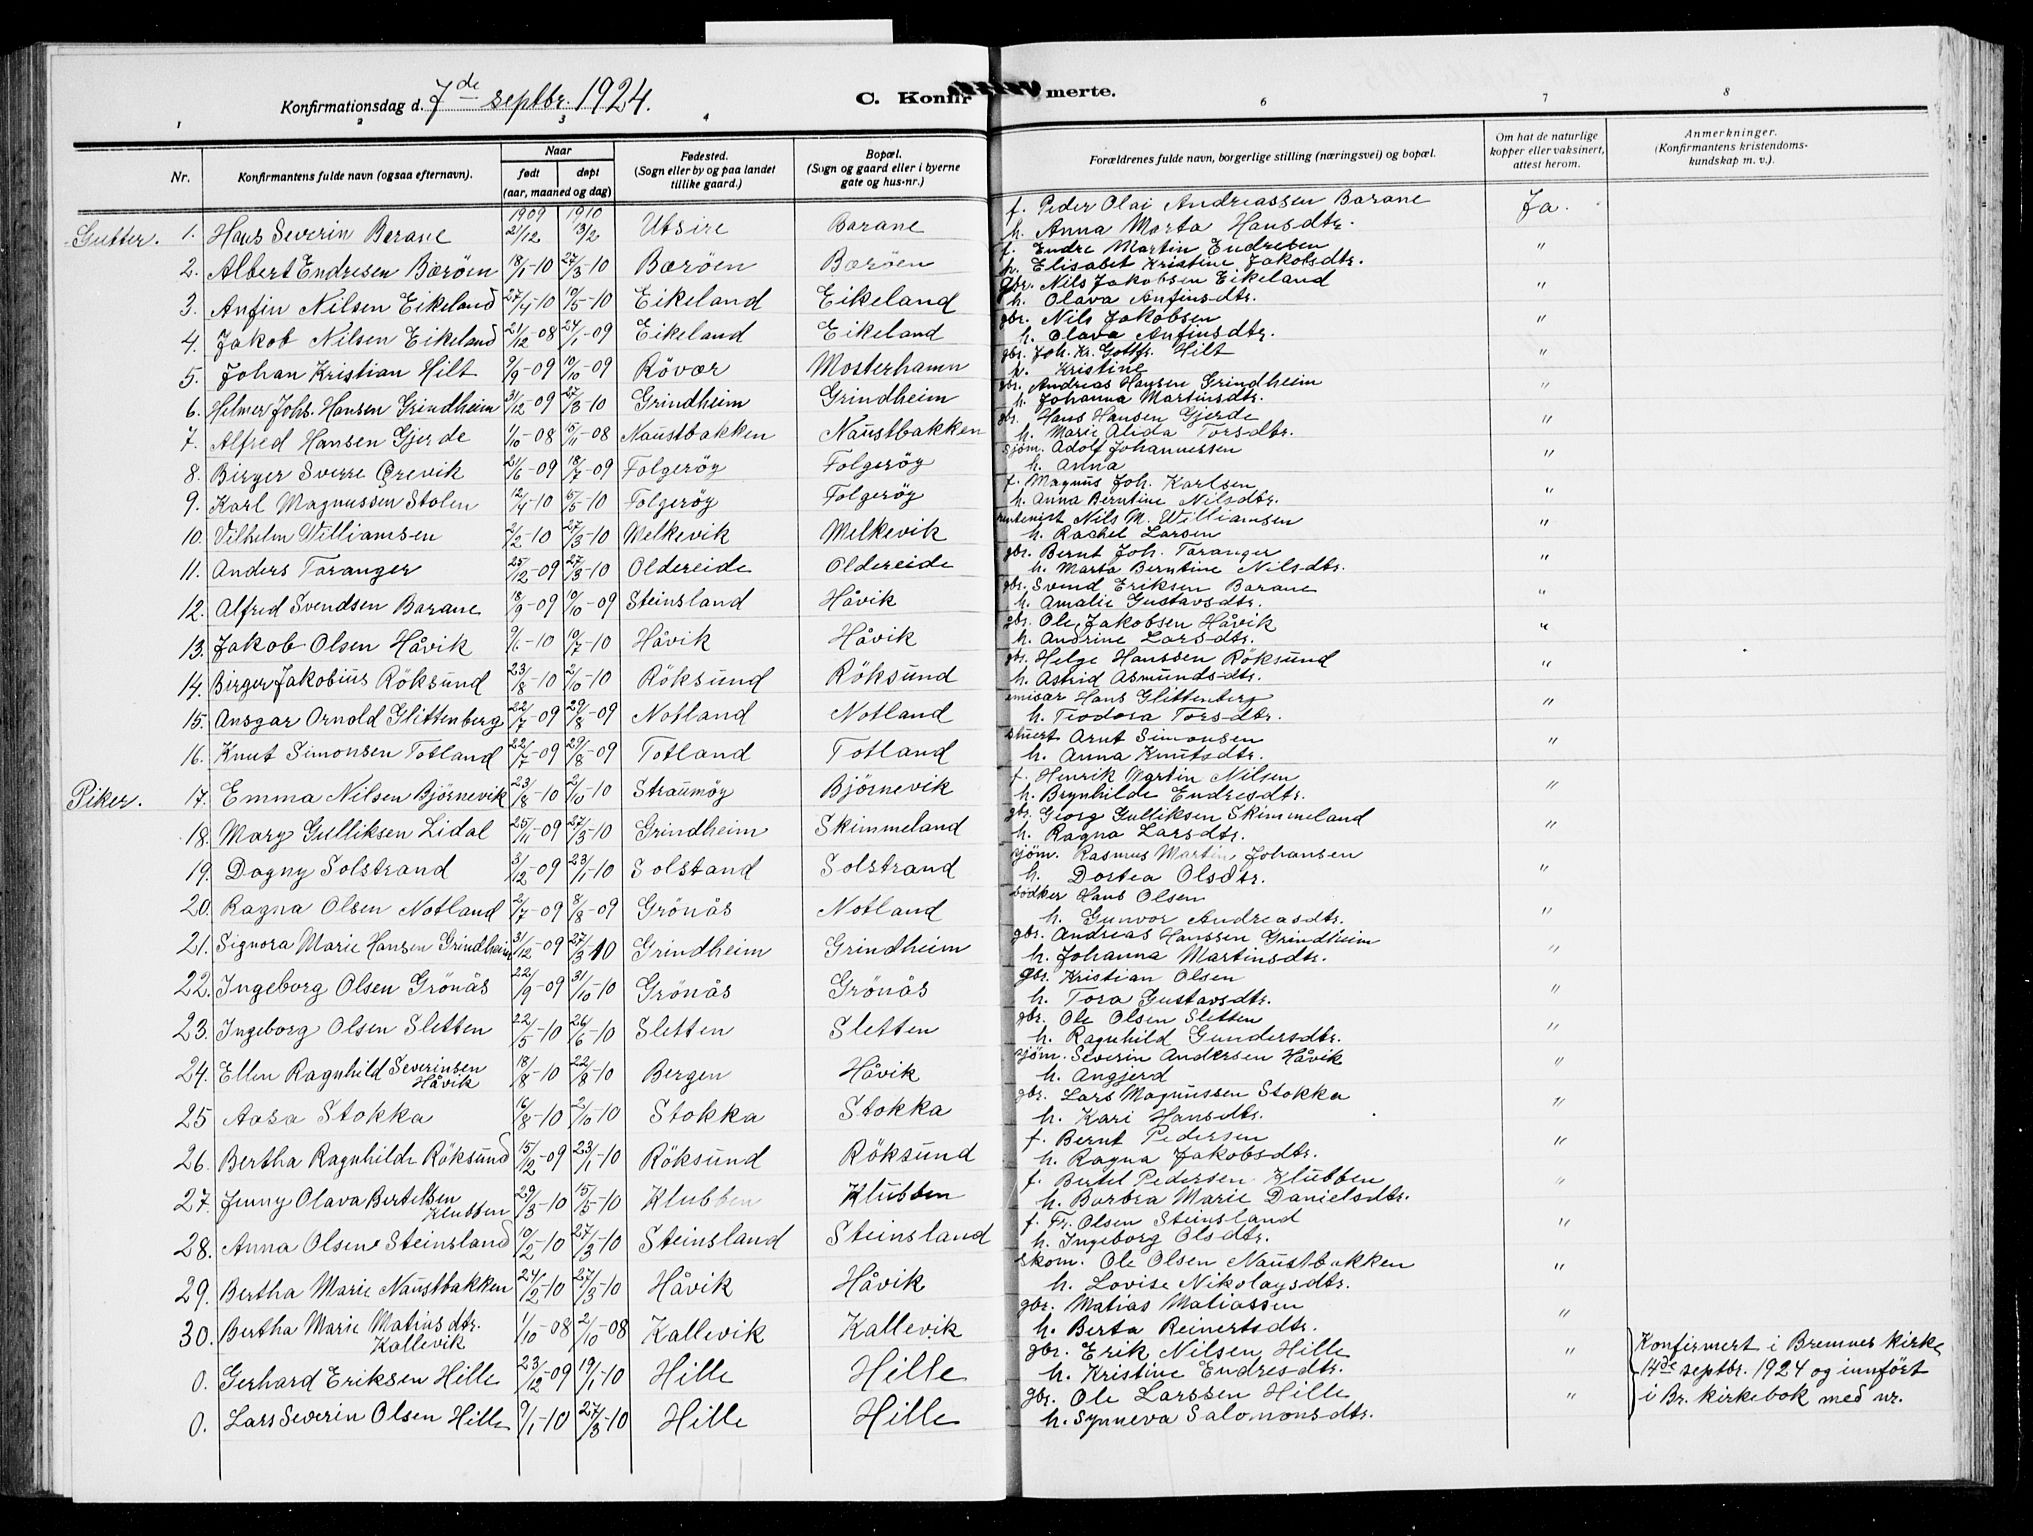 Konfirmationsdag d. 7de septbr. 1924.
C. Konfir merte.
1 2 3 4 6 7 8
Nr. Konfirmantens fulde navn (ogsaa efternavn). Naar født døpt (aar, maaned og dag) Fødested. (Sogn eller by og paa landet tillike gaard.) Bopæl. (Sogn og gaard eller i byerne gate og hus-nr.) Forældrenes fulde navn, borgerlige stilling (næringsvei) og bopæl. Om hat de naturlige kopper eller vaksinert, attest herom. Anmerkninger. (Konfirmantens kristendomskundskap m. v.).
Gutter. 1. Hans Severin Barane 1909 21/12 1910 13/2 Utsire Barane f. Peder Olai Andreassen Barane h. Anna Marta Hansdtr. Ja.
2. Albert Endresen Barøen 18/1-10 27/3-10 Barøen Barøen f. Endre Martin Endresen h. Elisabet Kristine Jakobsdtr. "
3. Anfin Nilsen Eikeland 27/4-10 10/5-10 Eikeland Eikeland gbr. Nils Jakobsen Eikeland h. Olava Anfinsdtr. "
4. Jakob Nilsen Eikeland 21/12-08 24/1-09 Eikeland Eikeland gbr. Nils Jakobsen h. Olava Anfinsdtr. "
5. Johan Kristian Hilt 9/9-09 10/10-09 Rövær Mosterhamn gbr. Joh. Kr. Gottfr. Hilt h. Kristine "
6. Hilmer Johs. Hansen Grindheim 31/12-09 27/3-10 Grindheim Grindheim gbr. Andreas Hansen Grindheim h. Johanna Martinsdtr. "
7. Alfred Hansen Gjerde 1/10-08 15/11-08 Naustbakken Naustbakken gbr. Hans Hansen Gjerde h. Marie Alida Torsdtr. "
8. Birger Sverre Grevik 21/6-09 18/7-09 Folgeröy Folgeröy sjöm. Adolf Johannessen h. Anna "
9. Karl Magnussen Stolen 12/4-10 15/5-10 Folgeröy Folgeröy f. Magnus Joh. Karlsen h. Anna Berntine Nilsdtr. "
10. Vilhelm Williamsen 2/2-10 27/3-10 Melkevik Melkevik Nils M. Williamsen h. Rachel Larsen "
11. Anders Taranger 25/12-09 27/3-10 Oldereide Oldereide gbr. Bernt Joh. Taranger h. Marta Berntine Nilsdtr. "
12. Alfred Svendsen Barane 18/9-09 10/10-09 Steinsland Håvik gbr. Svend Eriksen Barane h. Amalie Gustavsdtr. "
13. Jakob Olsen Håvik 9/6-10 10/7-10 Håvik Håvik gbr. Ole Jakobsen Håvik h. Andrine Larsdtr. "
14. Birger Jakobius Röksund 23/8-10 2/10-10 Röksund Röksund gbr. Helge Hanssen Röksund h. Astrid Asmundsdtr. "
15. Ansgar Arnold Glittenberg 22/7-09 29/8-09 Notland Notland emisær Hans Glittenberg h. Teodora Torsdtr. "
16. Knut Simonsen Totland 22/7-09 29/8-09 Totland Totland Arnt Simonsen h. Anna Knutsdtr. "
Piker. 17. Emma Nilsen Björnevik 23/8-10 2/10-10 Straumöy Björnevik f. Henrik Martin Nilsen h. Brynhilde Endresdtr. "
18. Mary Gulliksen Lidal 25/11-09 27/3-10 Grindheim Skimmeland gbr. Georg Gulliksen Skimmeland h. Ragna Larsdtr. "
19. Dagny Solstrand 3/12-09 23/1-10 Solstand Solstrand sjöm. Rasmus Martin Johansen h. Dortea Olsdtr. "
20. Ragna Olsen Notland 2/7-09 8/8-09 Grönås Notland bödker Hans Olsen h. Gunvor Andreasdtr. "
21. Signora Marie Hansen Grindheim 31/12-09 27/3 10 Grindheim Grindheim gbr. Andreas Hanssen Grindheim h. Johanna Martinsdtr. "
22. Ingeborg Olsen Grönås 22/9-09 31/10-10 Grönås Grönås gbr. Kristian Olsen h. Tora Gustavsdtr. "
23. Ingeborg Olsen Sletten 22/5-10 26/6-10 Sletten Sletten gbr. Ole Olsen Sletten h. Ragnhild Gundersdtr. "
24. Ellen Ragnhild Severinsen Håvik 18/8-10 22/8-10 Bergen Håvik sjöm. Severin Andersen Håvik h. Angjerd "
25 Aasa Stokka 16/8-10 2/10-10 Stokka Stokka gbr. Lars Magnussen Stokka h. Kari Hansdtr. "
26. Bertha Ragnhilde Röksund 15/12-09 23/1-10 Röksund Röksund f. Bernt Pedersen h. Ragna Jakobsdtr. "
27. Jenny Olava Bertelsen Klubben 29/3-10 15/5-10 Klubben Klubben f. Bertel Pedersen Klubben h. Barbra Marie Danielsdtr. "
28. Anna Olsen Steinsland 10/2-10 27/3-10 Steinsland Steinsland f. Fr. Olsen Steinsland h. Ingeborg Olsdtr. "
29. Bertha Marie Naustbakken 24/2-10 27/3-10 Håvik Håvik skom. Ole Olsen Naustbakken h. Lovise Nikolaysdtr. "
30. Bertha Marie Matiasdtr. Kallevik 1/10-08 2/10-08 Kallevik Kallevik gbr. Matias Matiassen h. Berta Reinertsdtr. "
0. Gerhard Eriksen Hille 23/12-09 19/1-10 Hille Hille gbr. Erik Nilsen Hille h. Kristine Endresdtr. "
0. Lars Severin Olsen Hille 9/1-10 27/3-10 Hille Hille gbr. Ole Larssen Hille h. Synneva Salomonsdtr. "
Konfirmert i Bremnes kirke
14de septbr. 1924 og innfört
i Br. kirkebok med nr.